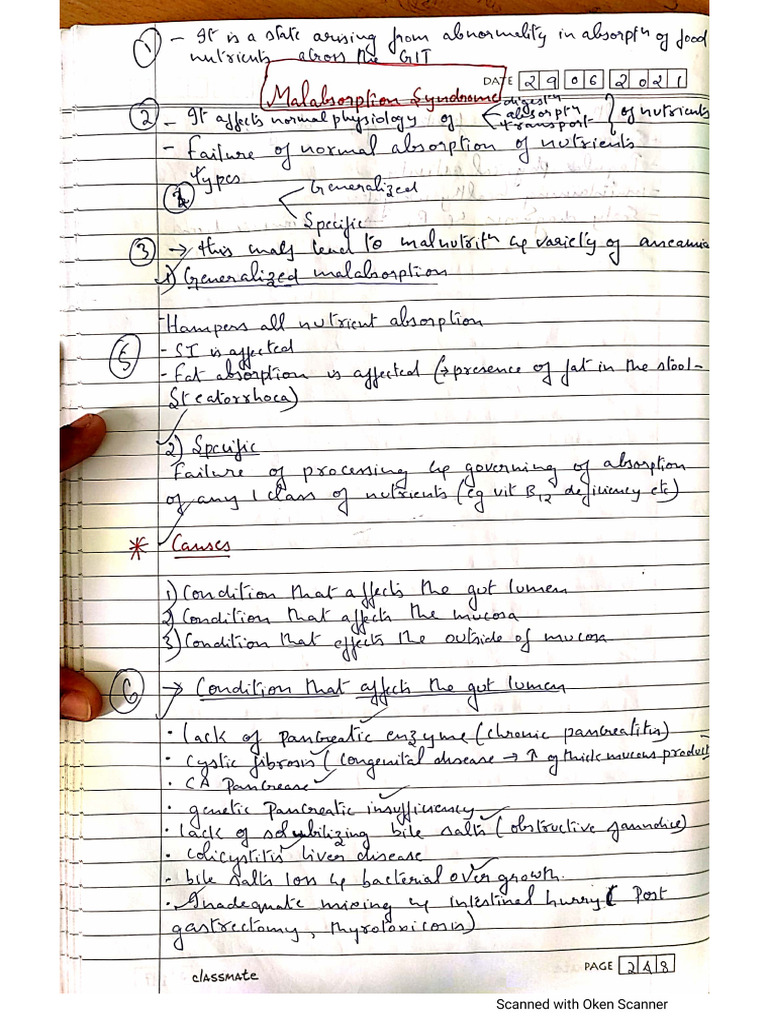 1 - It is a state arising from abnormality in absorptn of food
nutrients across the GIT
DATE 29 06 2021
Malabsorption Syndrome
2 - It affects normal physiology of digestn absorptn transport of nutrients
- Failure of normal absorption of nutrients
types
Generalized
Specific
3 → this may lead to malnutritn & variety of anaemia
1) Generalized malabsorption
- Hampers all nutrient absorption
5 - SI is affected
- Fat absorption is affected (→ presence of fat in the stool -
Steatorrhoea)
2) Specific
Failure of processing & governing of absorption
of any 1 class of nutrients (eg vit B12 deficiency etc)
* Causes
1) Condition that affects the gut lumen
2) Condition that affects the mucosa
3) Condition that effects the outside of mucosa
6 → Condition that affects the gut lumen
• lack of pancreatic enzyme (chronic pancreatitis)
• cystic fibrosis (congenital disease → ↑ of thick mucous product
• CA Pancrease
• genetic Pancreatic insufficiency
• lack of solubilizing bile salts (obstructive jaundice)
• colicystitis liver disease
• bile salts loss & bacterial overgrowth.
• Inadequate mixing & intestinal hurry ( Post
gastrectomy, thyrotoxicosis)
classmate
PAGE 248
Scanned with Oken Scanner